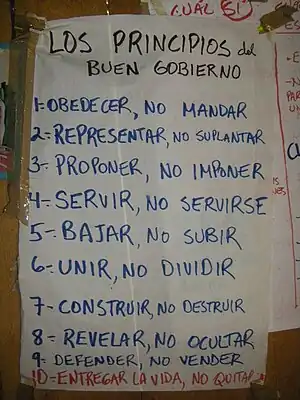 CUÁL ES
LOS PRINCIPIOS del
BUEN GOBIERNO
1-OBEDECER, NO MANDAR
2-REPRESENTAR, NO SUPLANTAR
3- PROPONER, NO IMPONER
4-SERVIR, NO SERVIRSE
5-BAJAR, NO SUBIR
6-UNIR, NO DIVIDIR
7-CONSTRUIR, NO DESTRUIR
8- REVELAR, NO OCULTAR
9- DEFENDER, NO VENDER
10-ENTREGAR LA VIDA, NO QUITAR